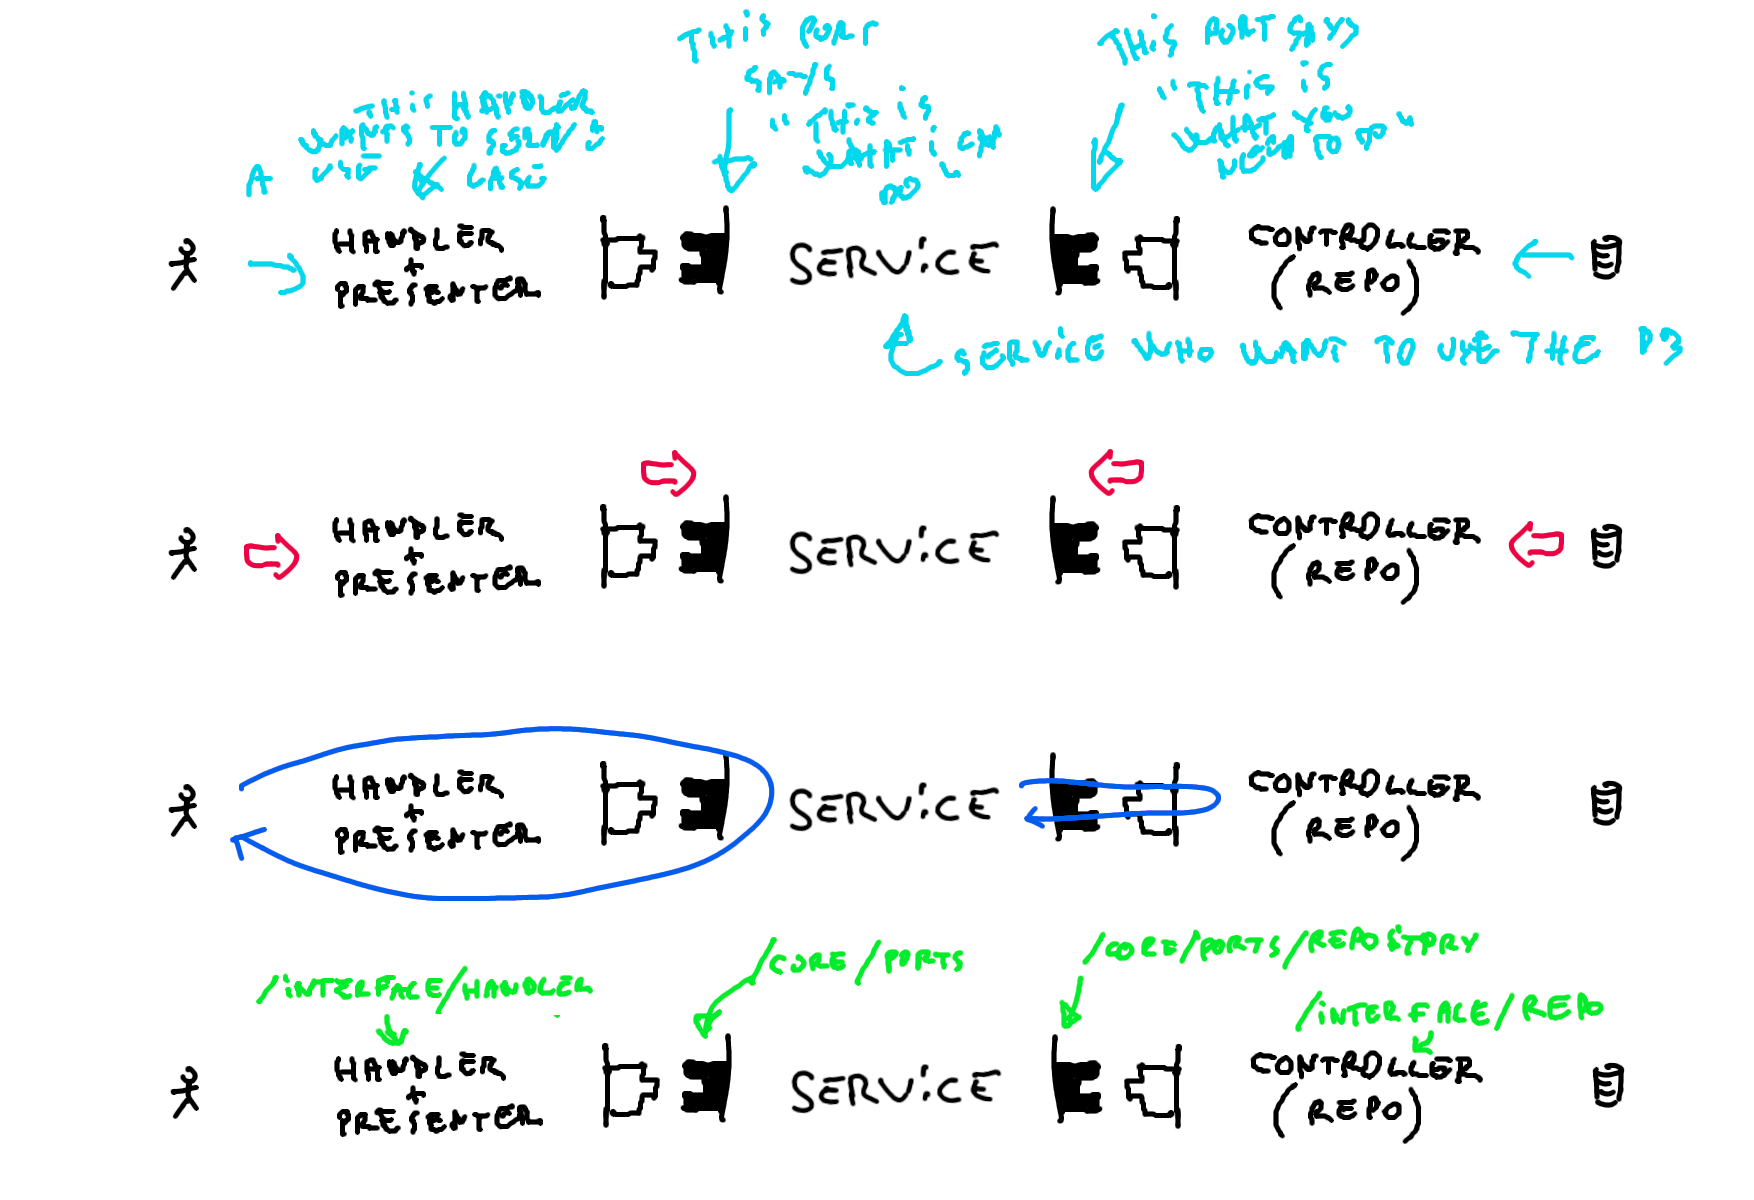 THIS PORT
SAYS
"THIS IS
WHAT I CAN
DO"
THIS PORT SAYS
"THIS IS
WHAT YOU
NEED TO DO"
THIS HANDLER
WANTS TO SERVE
A USE CASE
HANDLER
+
PRESENTER
SERVICE
CONTROLLER
(REPO)
SERVICE WHO WANT TO USE THE
HANDLER
+
PRESENTER
SERVICE
CONTROLLER
(REPO)
HANDLER
+
PRESENTER
SERVICE
CONTROLLER
(REPO)
/INTERFACE/HANDLER
/CORE/PORTS
/CORE/PORTS/REPOSITORY
/INTERFACE/REPO
HANDLER
+
PRESENTER
SERVICE
CONTROLLER
(REPO)